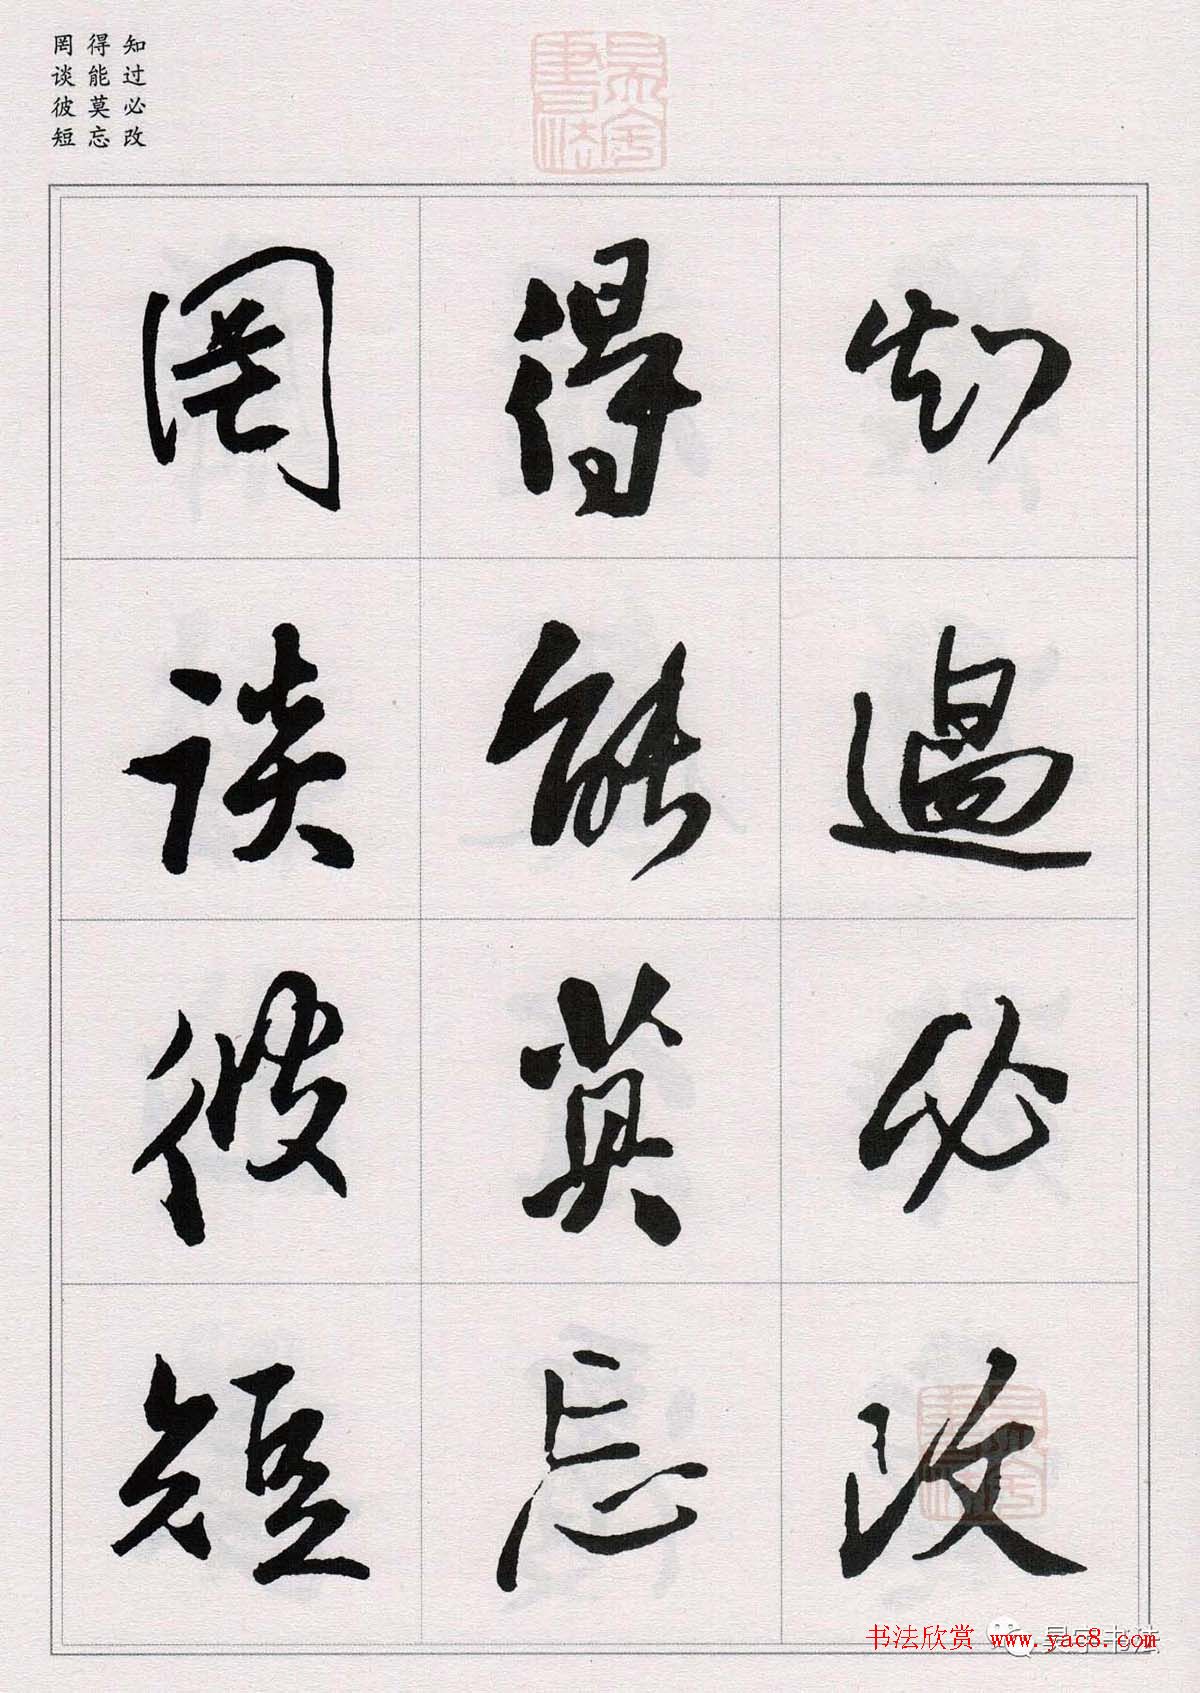 知过必改
得能莫忘
罔谈彼短
知過必改
得能莫忘
罔談彼短
书法欣赏 www.yac8.com